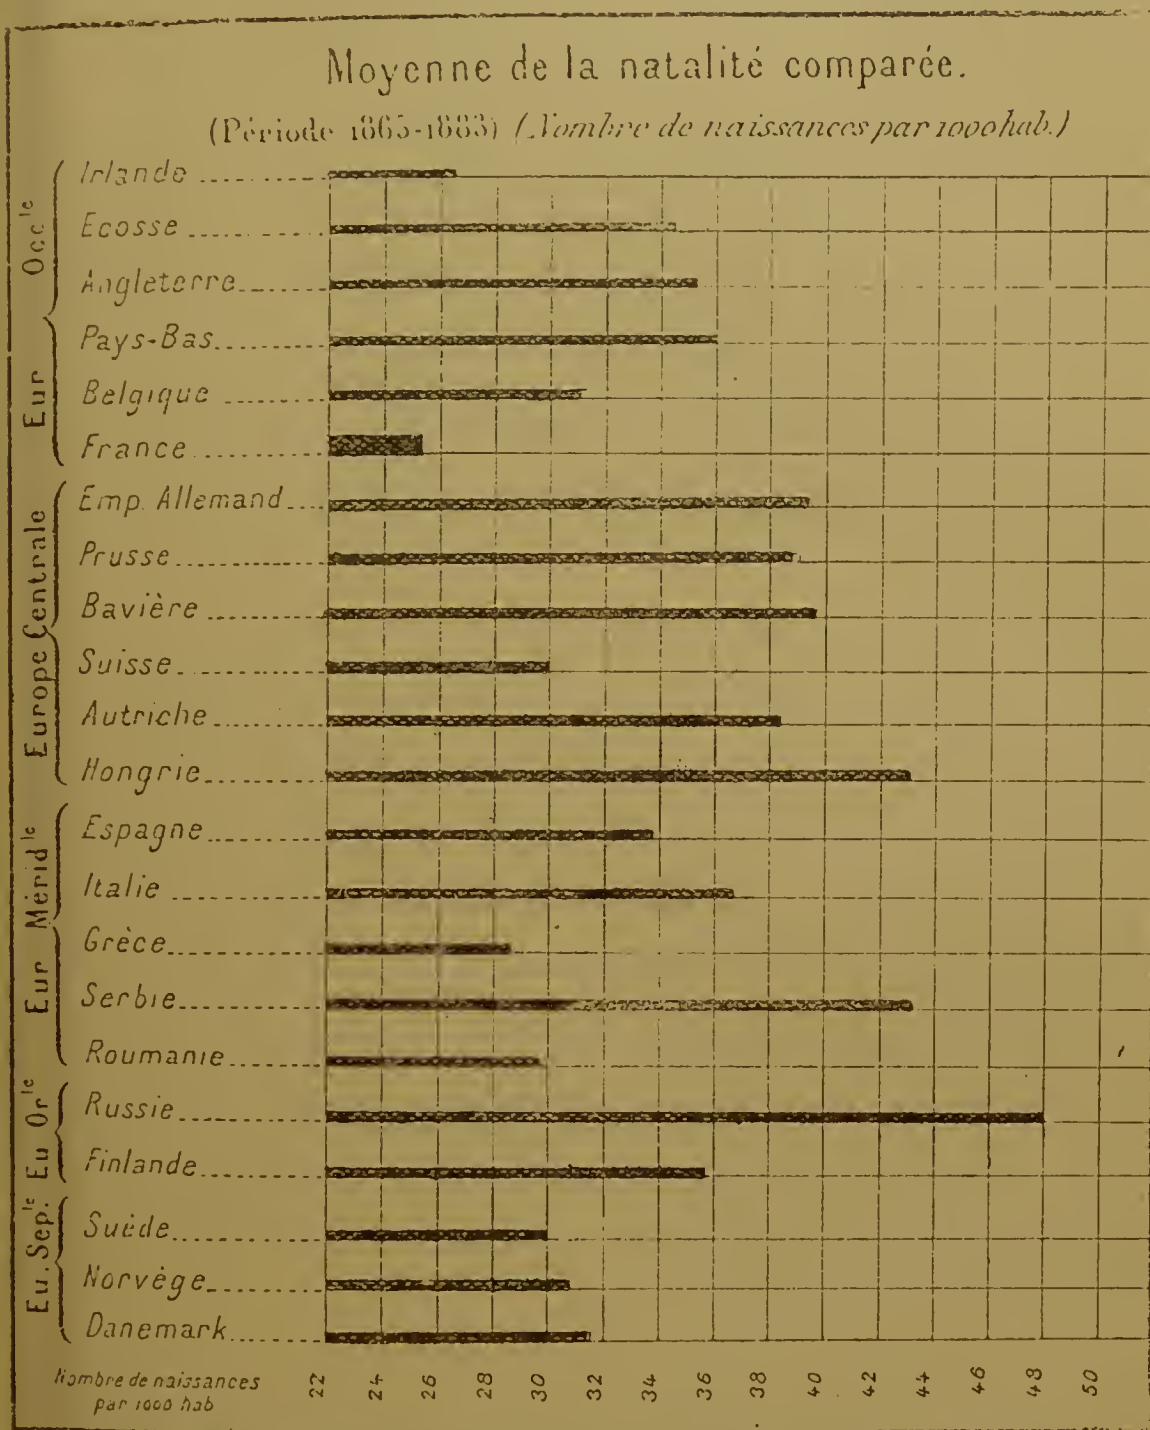 Moyenne de la natalité comparée.
(Période 1865-1883) (Nombre de naissances par 1000 hab.)
Eur Occ.le
Irlande
Ecosse
Angleterre
Pays-Bas
Belgique
France
Europe Centrale
Emp. Allemand
Prusse
Bavière
Suisse
Autriche
Hongrie
Eur Mérid.le
Espagne
Italie
Grèce
Serbie
Roumanie
Eu Or.le
Russie
Finlande
Eu. Sep.le
Suède
Norvège
Danemark
Nombre de naissances
par 1000 hab
22 24 26 28 30 32 34 36 38 40 42 44 46 48 50